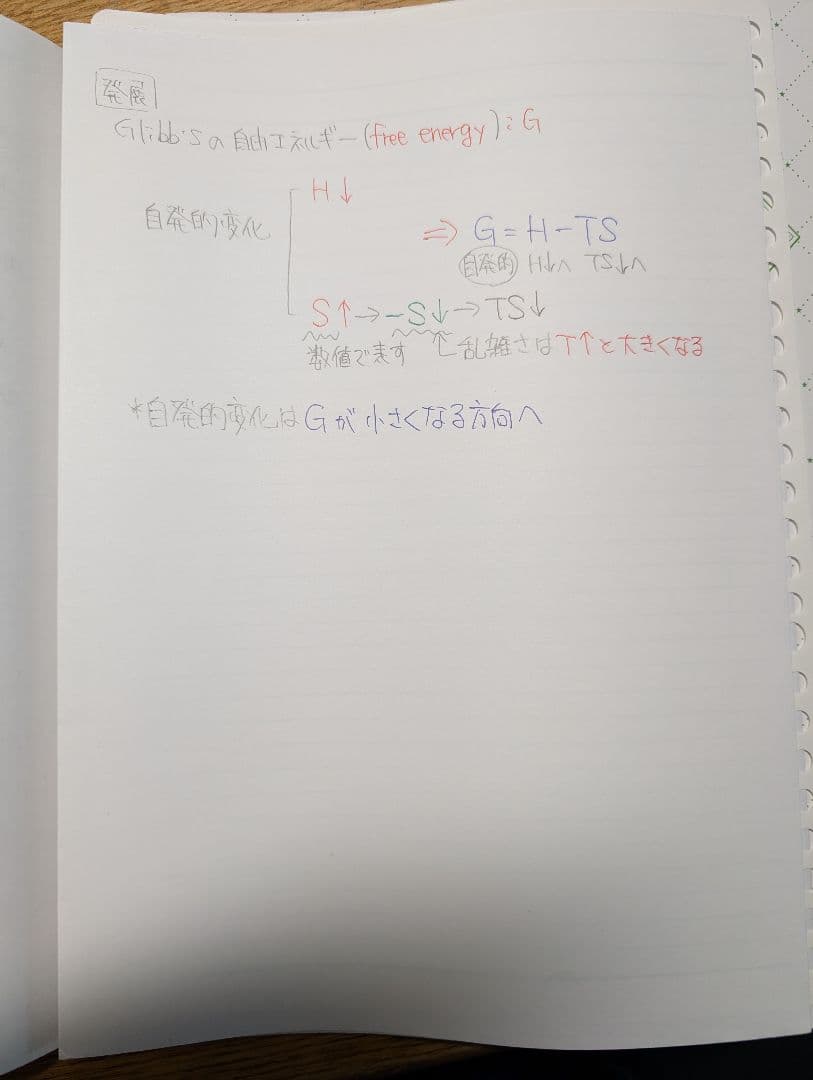 発展
Glibb'sの自由エネルギー(free energy):G
H↓
自発的変化
⇒ G=H-TS
自発的 H↓へ TS↓へ
S↑→-S↓→TS↓
数値で表す ↑乱雑さはT↑と大きくなる
*自発的変化はGが小さくなる方向へ